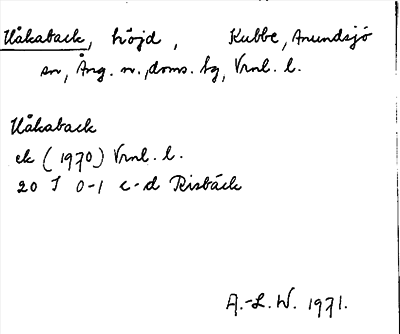 Håkaback, höjd, Kubbe, Anundsjö
sn, Ång. n., doms. bg, Vrnl. l.
Håkaback
ek (1970) Vrnl. l.
20 J 0-1 c-d Risbäck
A.-L. W. 1971.